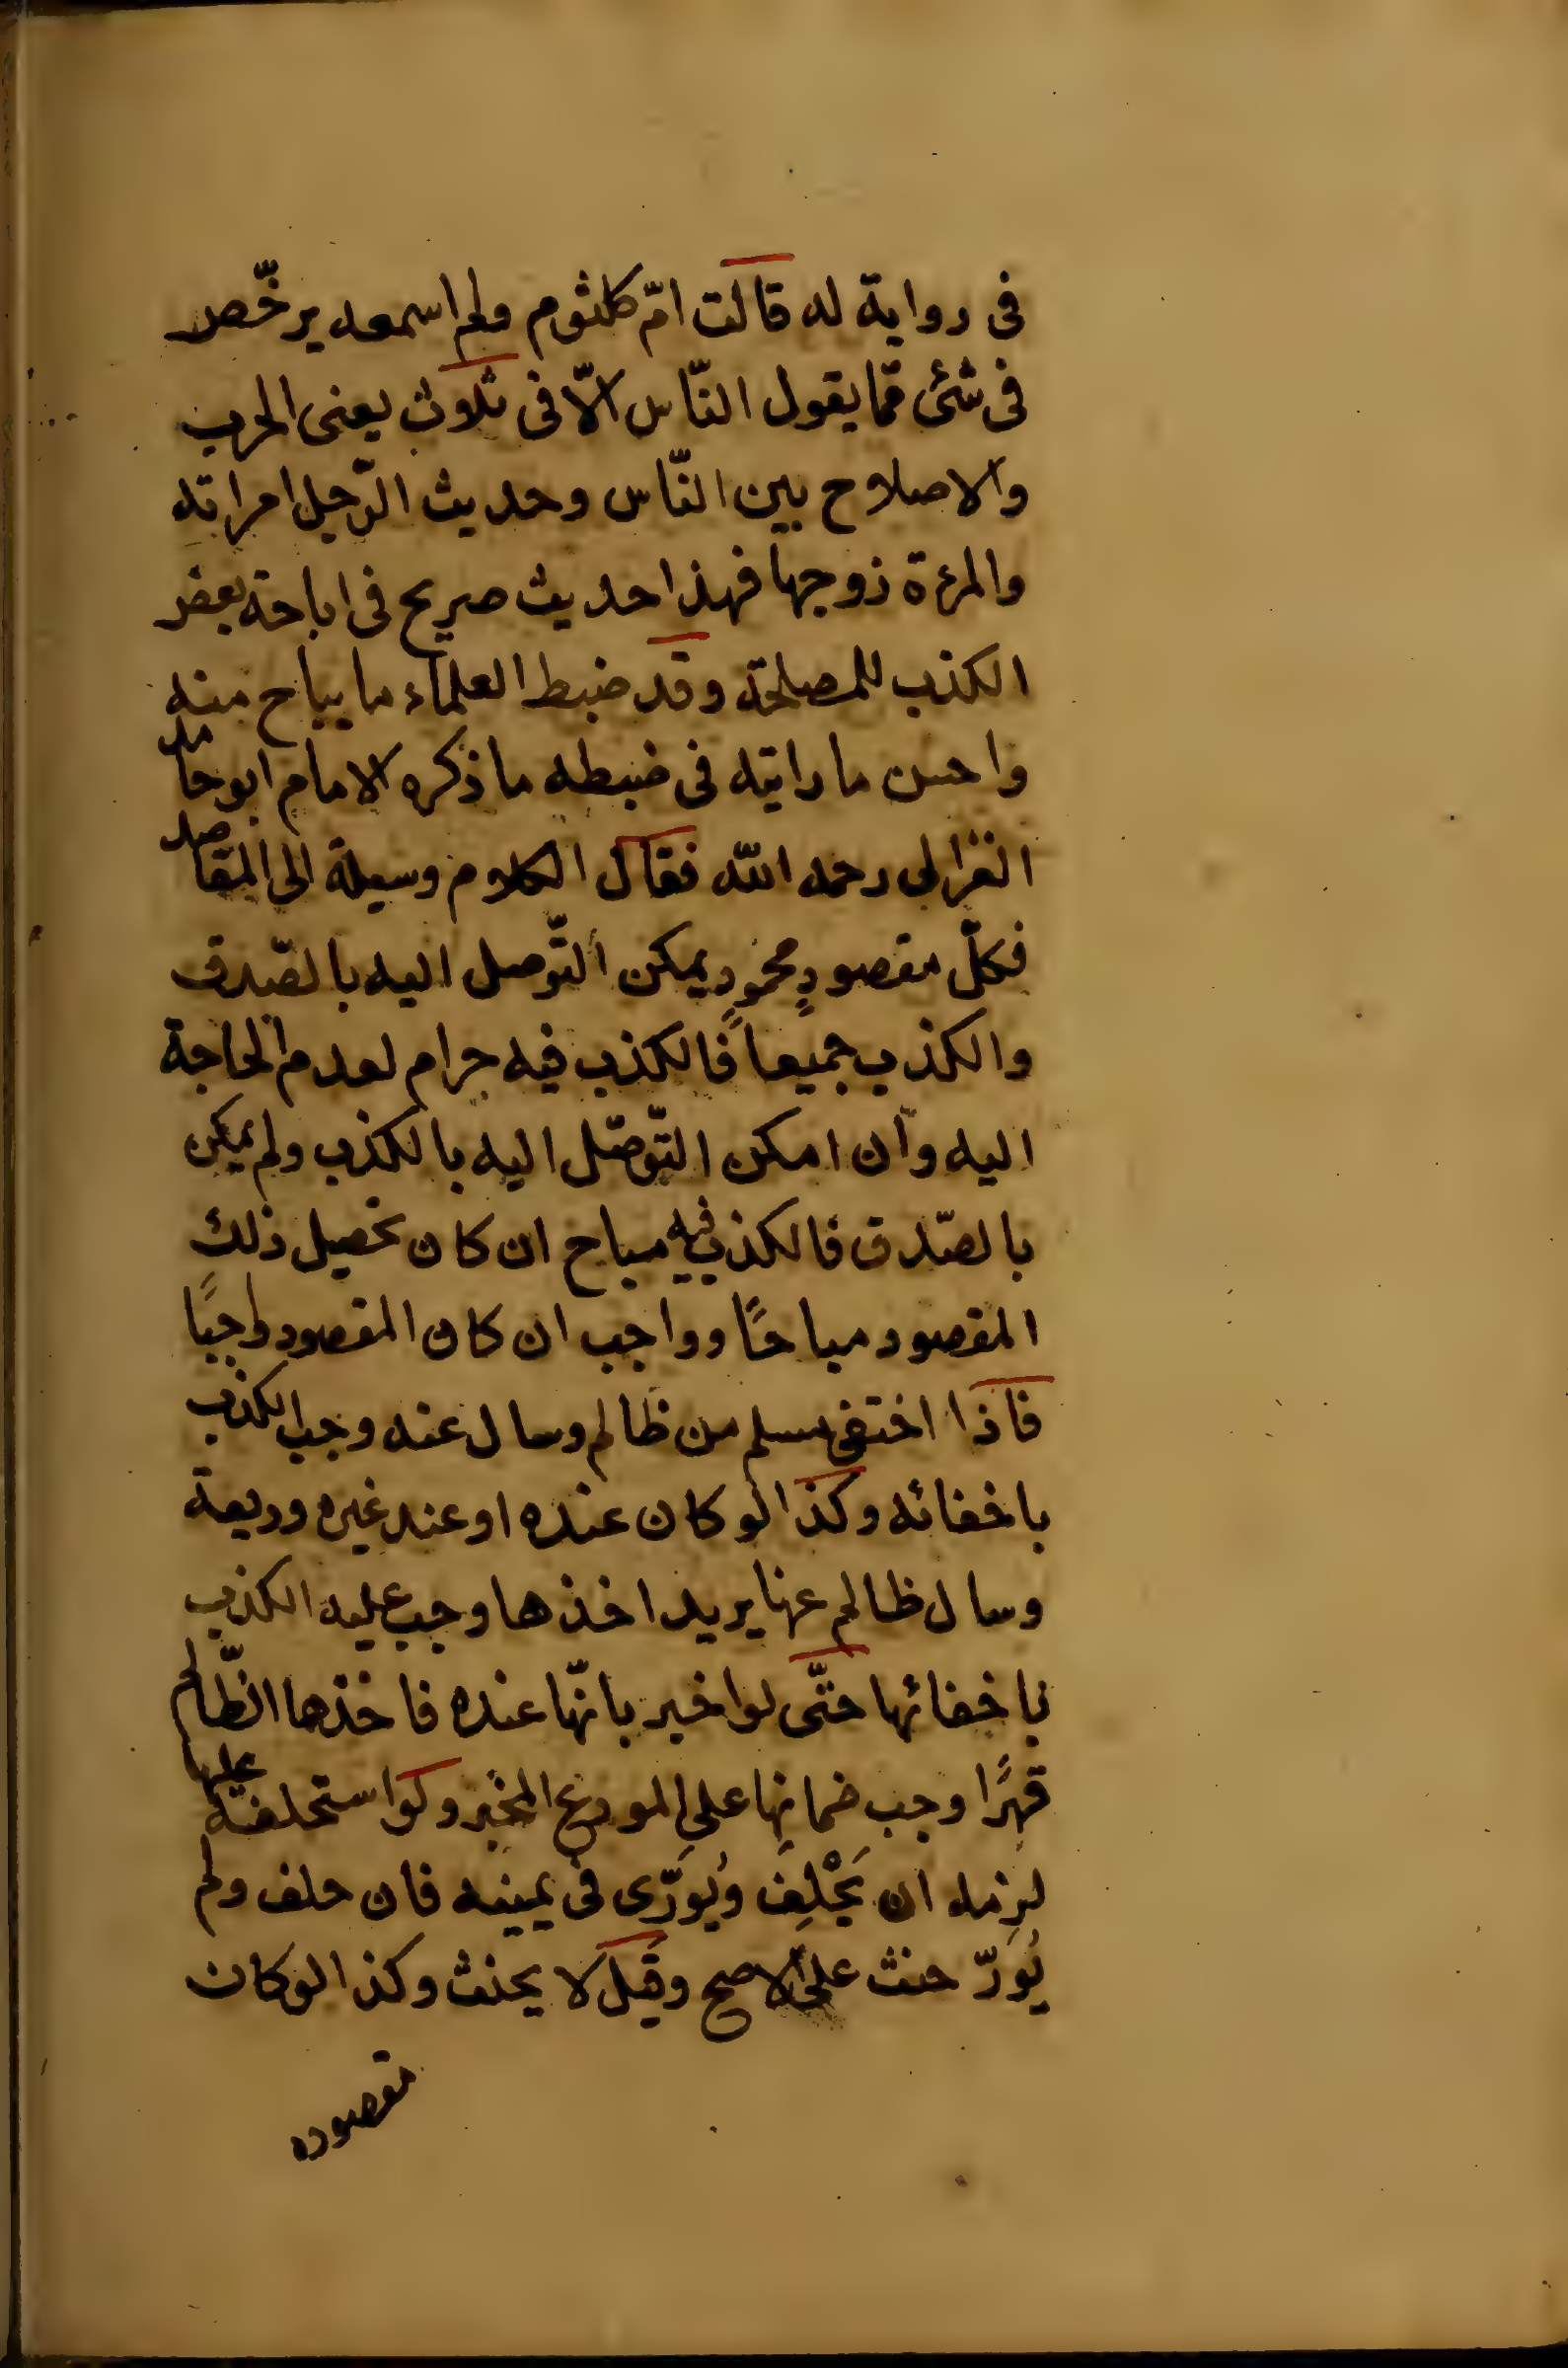 فى رواية له قالت امّ كلثوم ولم اسمعه يرخّص
فى شئى ممّا يقول النّاس الّا فى ثلوث يعنى الحرب
والاصلاح بين النّاس وحديث الرّجل امراته
والمرءة زوجها فهذا حديث صريح فى اباحة بعض
الكذب للمصلحة وقد ضبط العلماء ما يباح منه
واحسن ما رايته فى ضبطه ما ذكره الامام ابو حامد
الغزالى رحمه اللّه فقال الكلام وسيلة الى المقاصد
فكلّ مقصودٍ محمودٍ يمكن التّوصل اليه بالصّدق
والكذب جميعاً فالكذب فيه حرام لعدم الحاجة
اليه وان امكن التّوصّل اليه بالكذب ولم يمكن
بالصّدق فالكذب فيه مباح ان كان تحصيل ذلك
المقصود مباحًا وواجب ان كان المقصود واجبًا
فاذا اختفى مسلم من ظالم وسال عنه وجب الكذب
باخفائه وكذا لو كان عنده او عند غيره وديعة
وسال ظالم عنها يريد اخذها وجب عليه الكذب
باخفائها حتّى لو اخبر بانّها عنده فاخذها الظّالم
قهرًا وجب ضمانها على المودع المخبر ولو استحلفه عليها
لزمه ان يَحْلِفَ ويُوَرّى فى يمينه فان حلف ولم
يُوَرّ حنث على الاصح وقيل لا يحنث وكذا لو كان
مقصوده